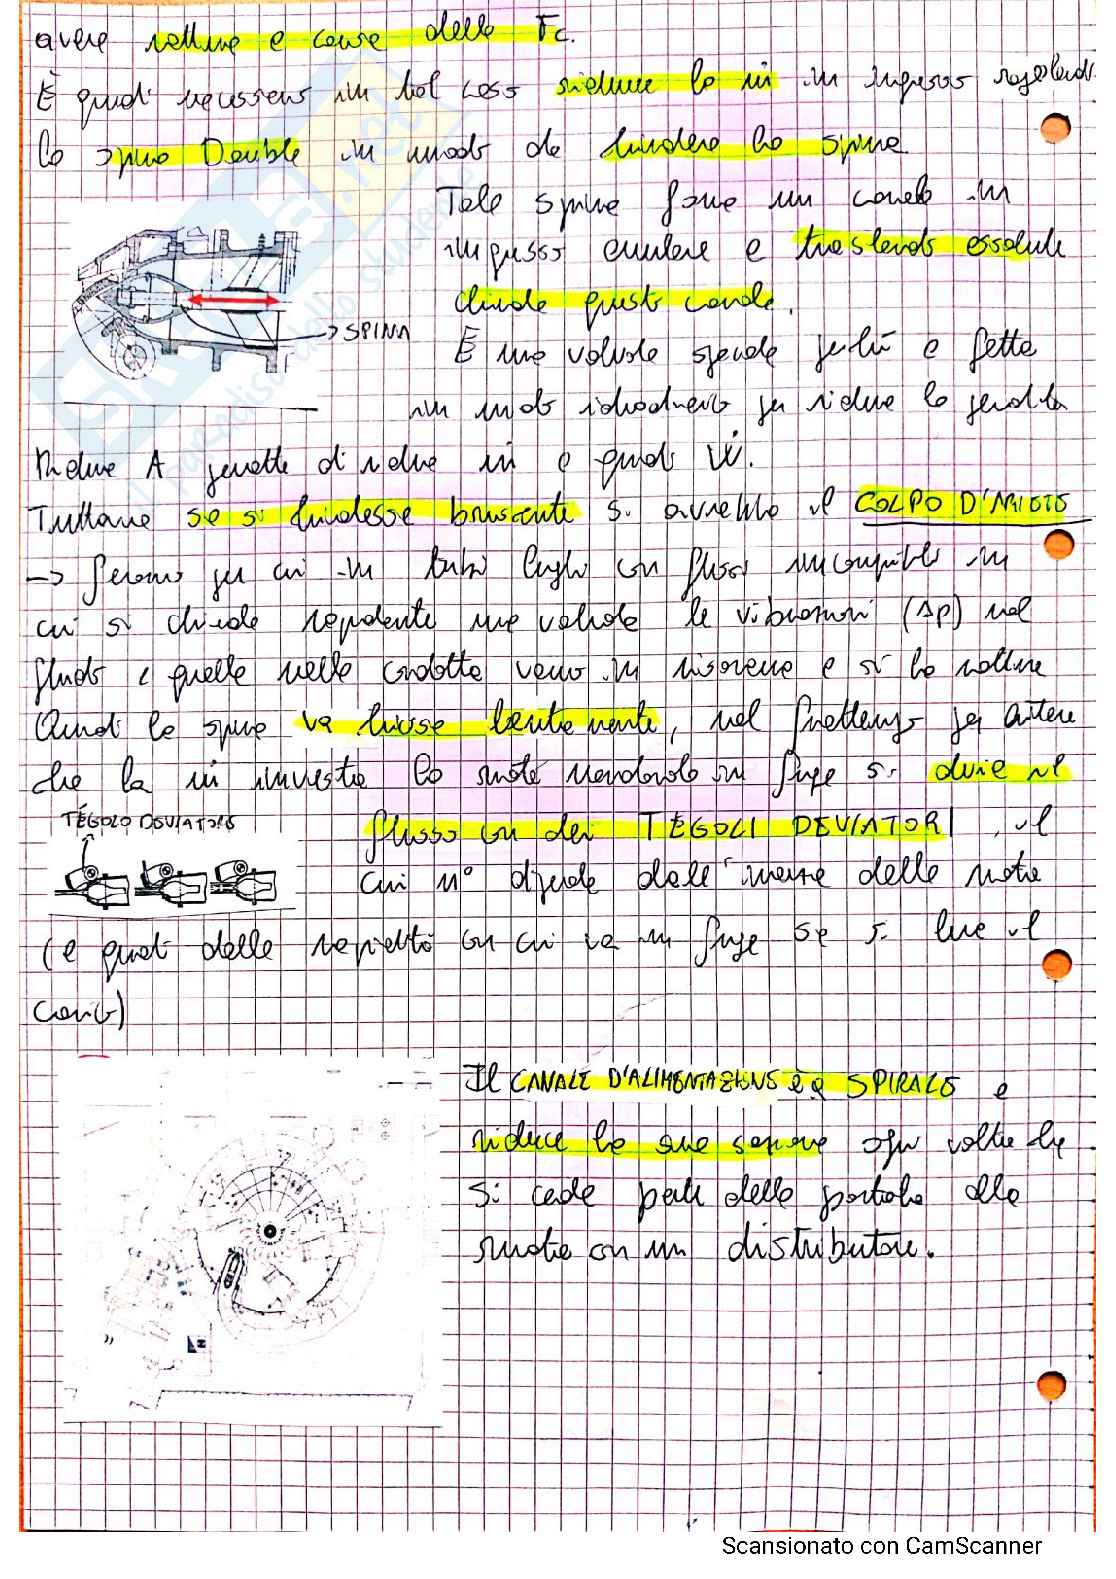 avere rotture a causa della Fc.
È quindi necessario in tal caso ridurre la ṁ in ingresso regolando
la spina Double in modo da chiudere la spina
Tale spina forma un canale in
ingresso anulare e traslando essa
chiude questo canale.
→ SPINA
È una valvola speciale perché è fatta
in modo idrodinamico per ridurre le perdite
Ridurre A permette di ridurre ṁ e quindi Ẇ.
Tuttavia se si chiudesse bruscamente si avrebbe il COLPO D'ARIETE
→ fenomeno per cui in tubi lunghi con flussi incomprimibili in
cui si chiude repentinamente una valvola le vibrazioni (Δp) nel
fluido e quelle nella condotta vanno in risonanza e si ha rottura
Quindi la spina va chiusa lentamente, nel frattempo per evitare
che la ṁ investa la ruota mandandola in fuga si devia il
TEGOLO DEVIATORE
flusso con dei TEGOLI DEVIATORI, il
cui n° dipende dall'inerzia della ruota
(e quindi dalla rapidità con cui va in fuga se si leva il
carico)
Il CANALE D'ALIMENTAZIONE è a SPIRALE e
riduce la sua sezione ogni volta che
si cede parte della portata alla
ruota con un distributore.
Scansionato con CamScanner